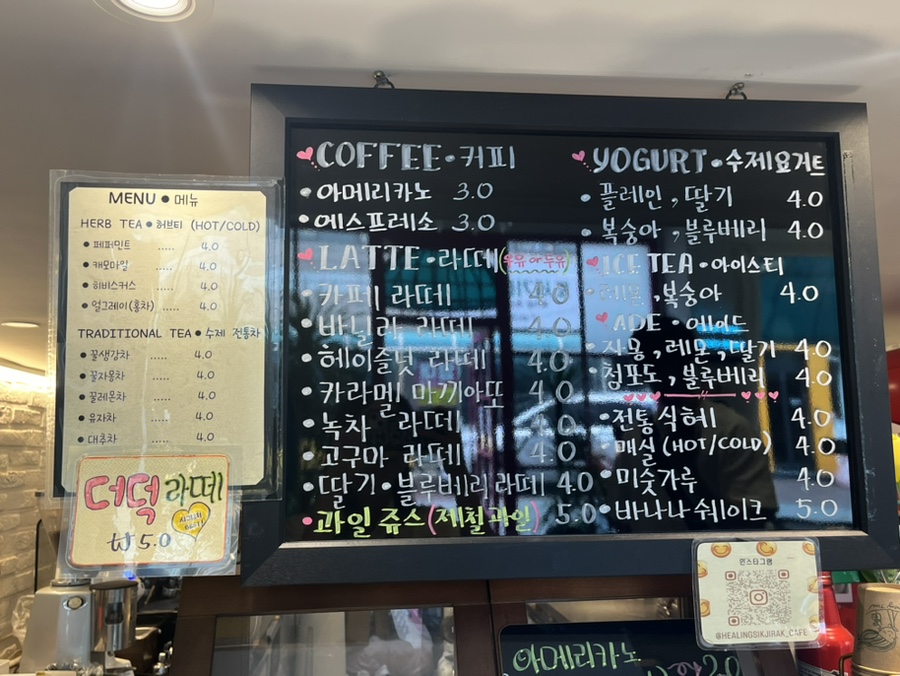 MENU • 메뉴
HERB TEA • 허브티 (HOT/COLD)
• 페퍼민트 ..... 4.0
• 캐모마일 ..... 4.0
• 히비스커스 ..... 4.0
• 얼그레이(홍차) ..... 4.0
TRADITIONAL TEA • 수제 전통차
• 꿀생강차 ..... 4.0
• 꿀자몽차 ..... 4.0
• 꿀레몬차 ..... 4.0
• 유자차 ..... 4.0
• 대추차 ..... 4.0
더덕 라떼
₩ 5.0
COFFEE • 커피
• 아메리카노 3.0
• 에스프레소 3.0
LATTE • 라떼(우유 or 두유)
• 카페 라떼 4.0
• 바닐라 라떼 4.0
• 헤이즐넛 라떼 4.0
• 카라멜 마끼아또 4.0
• 녹차 라떼 4.0
• 고구마 라떼 4.0
• 딸기 • 블루베리 라떼 4.0
• 과일 쥬스 (제철과일) 5.0
YOGURT • 수제요거트
• 플레인, 딸기 4.0
• 복숭아, 블루베리 4.0
ICE TEA • 아이스티
• 레몬, 복숭아 4.0
ADE • 에이드
• 자몽, 레몬, 딸기 4.0
• 청포도, 블루베리 4.0
• 전통식혜 4.0
• 매실 (HOT/COLD) 4.0
• 미숫가루 4.0
• 바나나 쉐이크 5.0
인스타그램
@HEALINGSIKJIRAK_CAFE
아메리카노
2.0